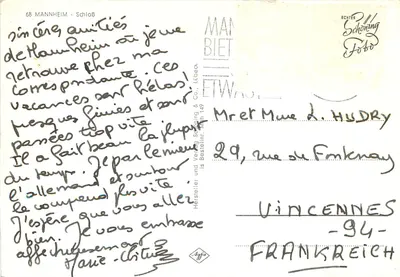 68 MANNHEIM - Schloß
sincères amitiés
de Mannheim où je me
retrouve chez ma
correspondante. Ces
vacances sont hélas!
presque finies et sont
passées trop vite.
Il a fait beau la plupart
du temps. Je parle mieux
l'allemand et surtout
le comprend plus vite.
J'espère que vous allez
bien. Je vous embrasse
affectueusement
Marie-
MAN
BIET
ETWAS
ECHTE
Schöning
Foto
Mr et Mme L. HUDRY
29, rue de Fontenay
VINCENNES
-94-
FRANKREICH
Agfa